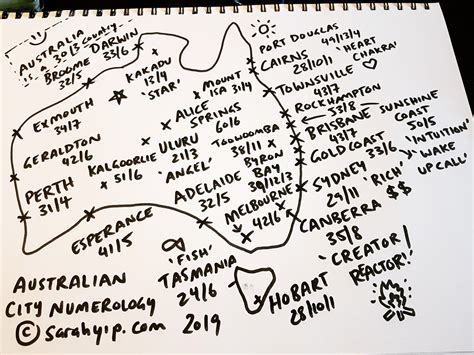 AUSTRALIA
IS A 30/3 COUNTRY
BROOME
32/5
DARWIN
33/6
KAKADU
13/4
'STAR'
MOUNT
ISA 31/4
PORT DOUGLAS
49/13/4
CAIRNS
28/10/1
'HEART
CHAKRA'
TOWNSVILLE
43/7
ROCKHAMPTON
53/8
EXMOUTH
34/7
GERALDTON
42/6
PERTH
31/4
KALGOORLIE
51/6
ALICE
SPRINGS
60/6
ULURU
21/3
'ANGEL'
TOOWOOMBA
38/11
BYRON
BAY
39/12/3
BRISBANE
43/7
SUNSHINE
COAST
50/5
GOLD COAST
33/6
'INTUITION'
WAKE
UP CALL!
ADELAIDE
32/5
MELBOURNE
42/6
SYDNEY
29/11
'RICH'
$$
CANBERRA
35/8
'CREATOR/
REACTOR!'
ESPERANCE
41/5
'FISH'
TASMANIA
24/6
HOBART
28/10/1
AUSTRALIAN
CITY NUMEROLOGY
© sarahyip.com 2019